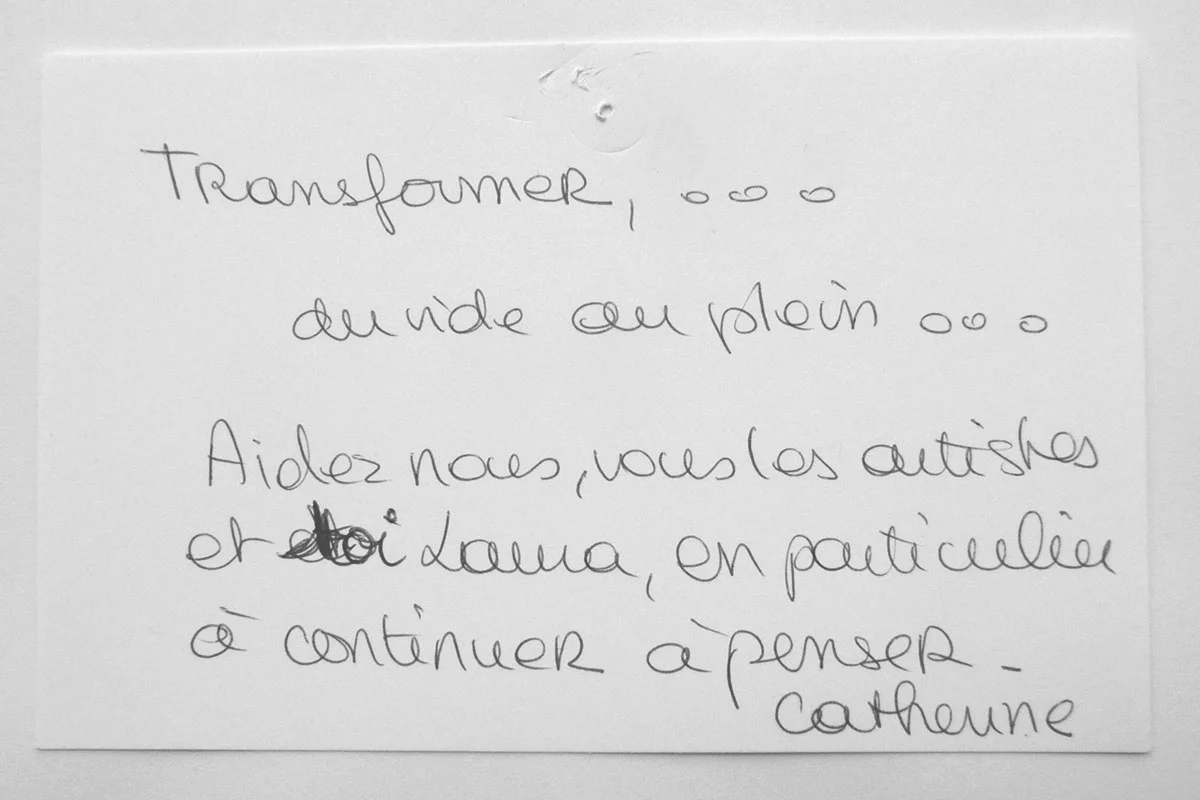 Transformer, ...
du vide au plein ...
Aidez nous, vous les artistes
et toi Laura, en particulier
à continuer à penser -
Catherine